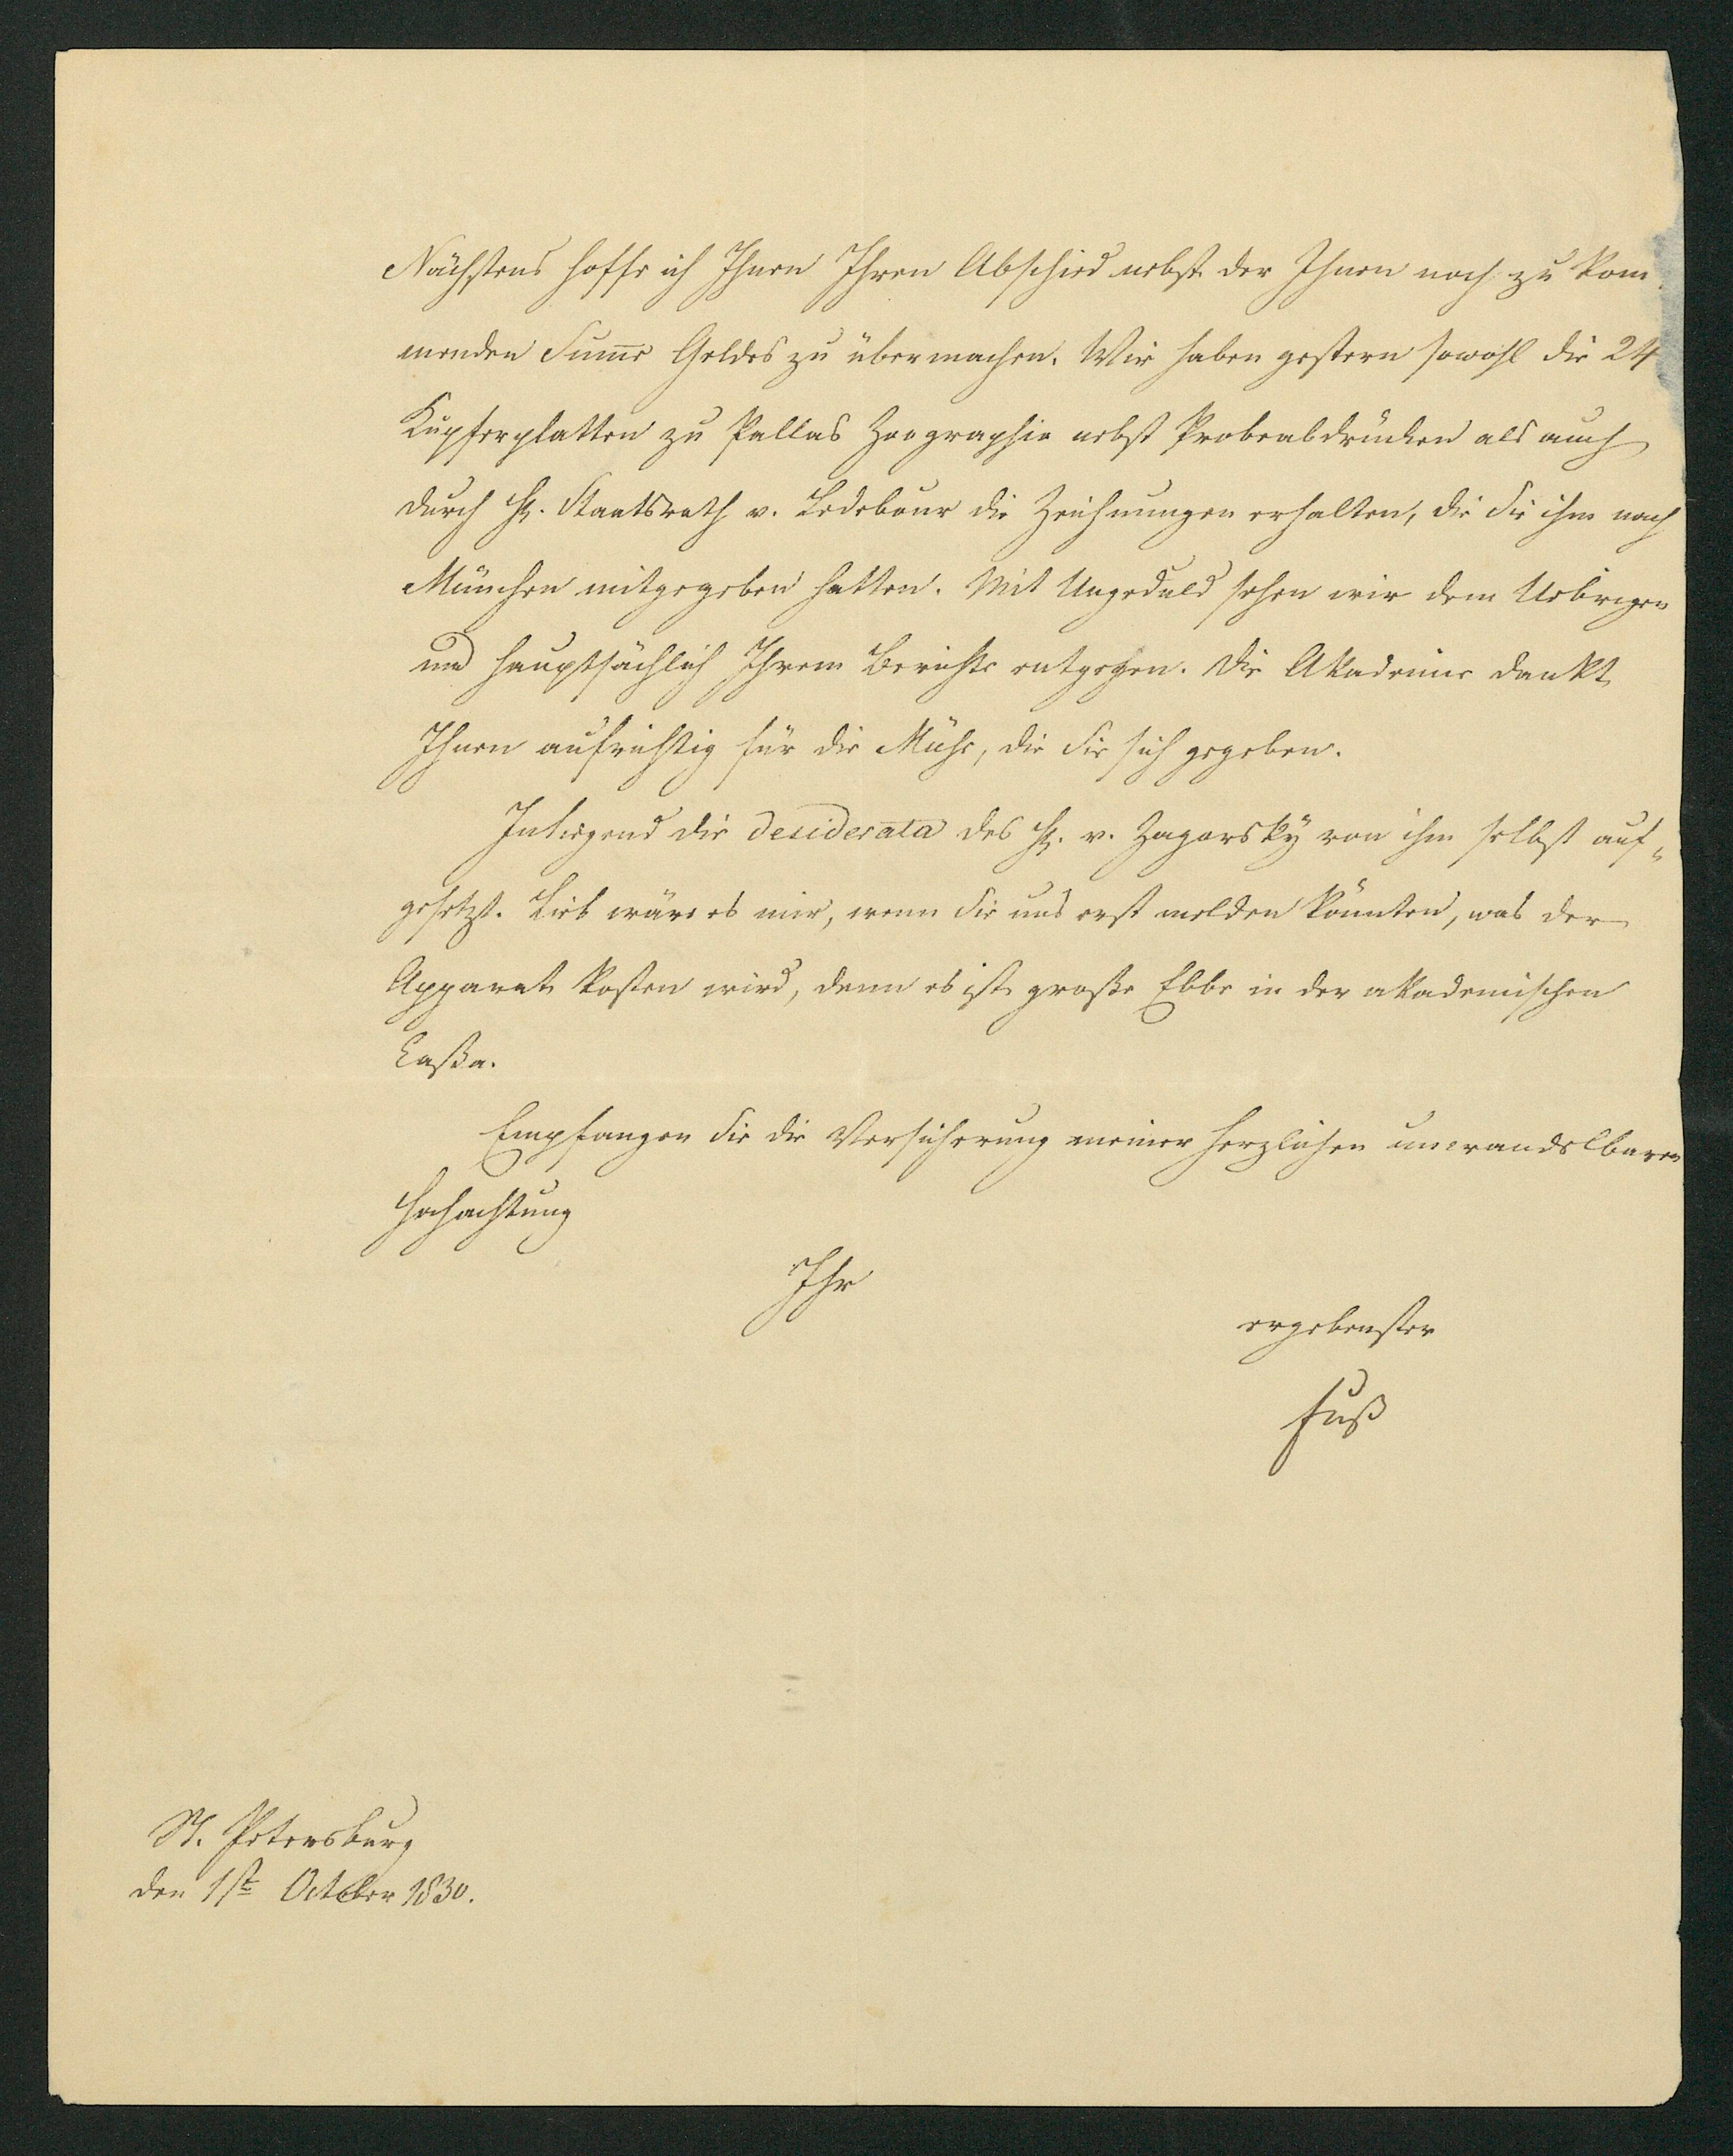 Nächstens hoffe ich Ihnen Ihren Abschied nebst der Ihnen noch zu kom-
menden Sum̄e Geldes zu übermachen. Wir haben gestern sowohl die 24
Kupferplatten zu Pallas Zoographie nebst Probeabdrücken als auch
durch H. Staatsrath v. Ledebour die Zeichnungen erhalten, die Sie ihm nach
München mitgegeben hatten. Mit Ungeduld sehen wir dem Uebrigen
und hauptsächlich Ihrem Berichte entgegen. Die Akademie dankt
Ihnen aufrichtig für die Mühe, die Sie sich gegeben.
Inliegend die desiderata des H. v. Zagorsky von ihm selbst auf-
gesetzt. Lieb wäre es mir, wenn Sie uns erst melden könnten, was der
Apparat kosten wird, denn es ist große Ebbe in der akademischen
Caßa.
Empfangen Sie die Versicherung meiner herzlichen unwandelbaren
Hochachtung
Ihr
ergebenster
Fuß
St. Petersburg
den 1st October 1830.